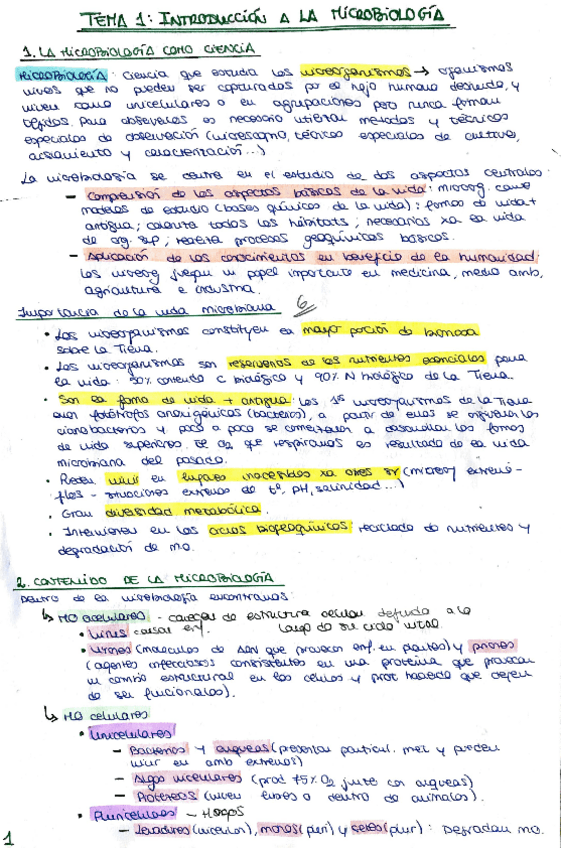 TEMA 1: INTRODUCCIÓN A LA MICROBIOLOGÍA
1. LA MICROBIOLOGÍA COMO CIENCIA
MICROBIOLOGÍA: ciencia que estudia los microorganismos → organismos
vivos que no pueden ser capturados por el ojo humano desnudo, y
viven como unicelulares o en agrupaciones pero nunca forman
tejidos. Para observarlos es necesario utilizar métodos y técnicas
especiales de observación (microscopio, técnicas especiales de cultivo,
aislamiento y caracterización...)
La microbiología se centra en el estudio de dos aspectos centrales:
- Comprensión de los aspectos básicos de la vida: microorg. como
modelos de estudio (bases químicas de la vida); formas de vida +
antigua; todos los hábitats; necesarios xa la vida
de org. sup; procesos geoquímicos básicos.
- Aplicación de los conocimientos en beneficio de la humanidad:
los microorg juegan un papel importante en medicina, medio amb,
agricultura e industria.
Importancia de la vida microbiana 6
• Los microorganismos constituyen la mayor porción de biomasa
sobre la Tierra.
• Los microorganismos son reservorios de los nutrientes esenciales para
la vida: 50% contenido C biológico y 90% N biológico de la Tierra.
• Son la forma de vida + antigua: los 1ºs microorganismos de la Tierra
eran fotótrofos anoxigénicos (bacterias), a partir de ellas se originaron las
cianobacterias y poco a poco se comenzaron a desarrollar las formas
de vida superiores. El O2 que respiramos es resultado de la vida
microbiana del pasado.
• Pueden vivir en lugares inaccesibles xa otros sv (microorg extremó-
filos - situaciones extremas de tº, pH, salinidad...)
• Gran diversidad metabólica.
• Intervienen en los ciclos biogeoquímicos: reciclado de nutrientes y
degradación de mo.
2. CONTENIDO DE LA MICROBIOLOGÍA
Dentro de la microbiología encontramos:
↳ MO acelulares - carecen de estructura celular definida a lo
largo de su ciclo vital.
• Virus causan enf.
• Viroides (moléculas de ARN que provocan enf. en plantas) y priones
(agentes infecciosos consistentes en una proteína que provocan
un cambio estructural en las células y prot haciendo que dejen
de ser funcionales).
↳ MO celulares
• Unicelulares
- Bacterias y arqueas (presentan particul. met y pueden
vivir en amb extremos)
- Algas unicelulares (prod 75% O2 junto con arqueas)
- Protozoos (viven libres o dentro de animales).
• Pluricelulares - Hongos
- Levaduras (unicelular), mohos (pluri) y setas (plur): Degradan mo.
1